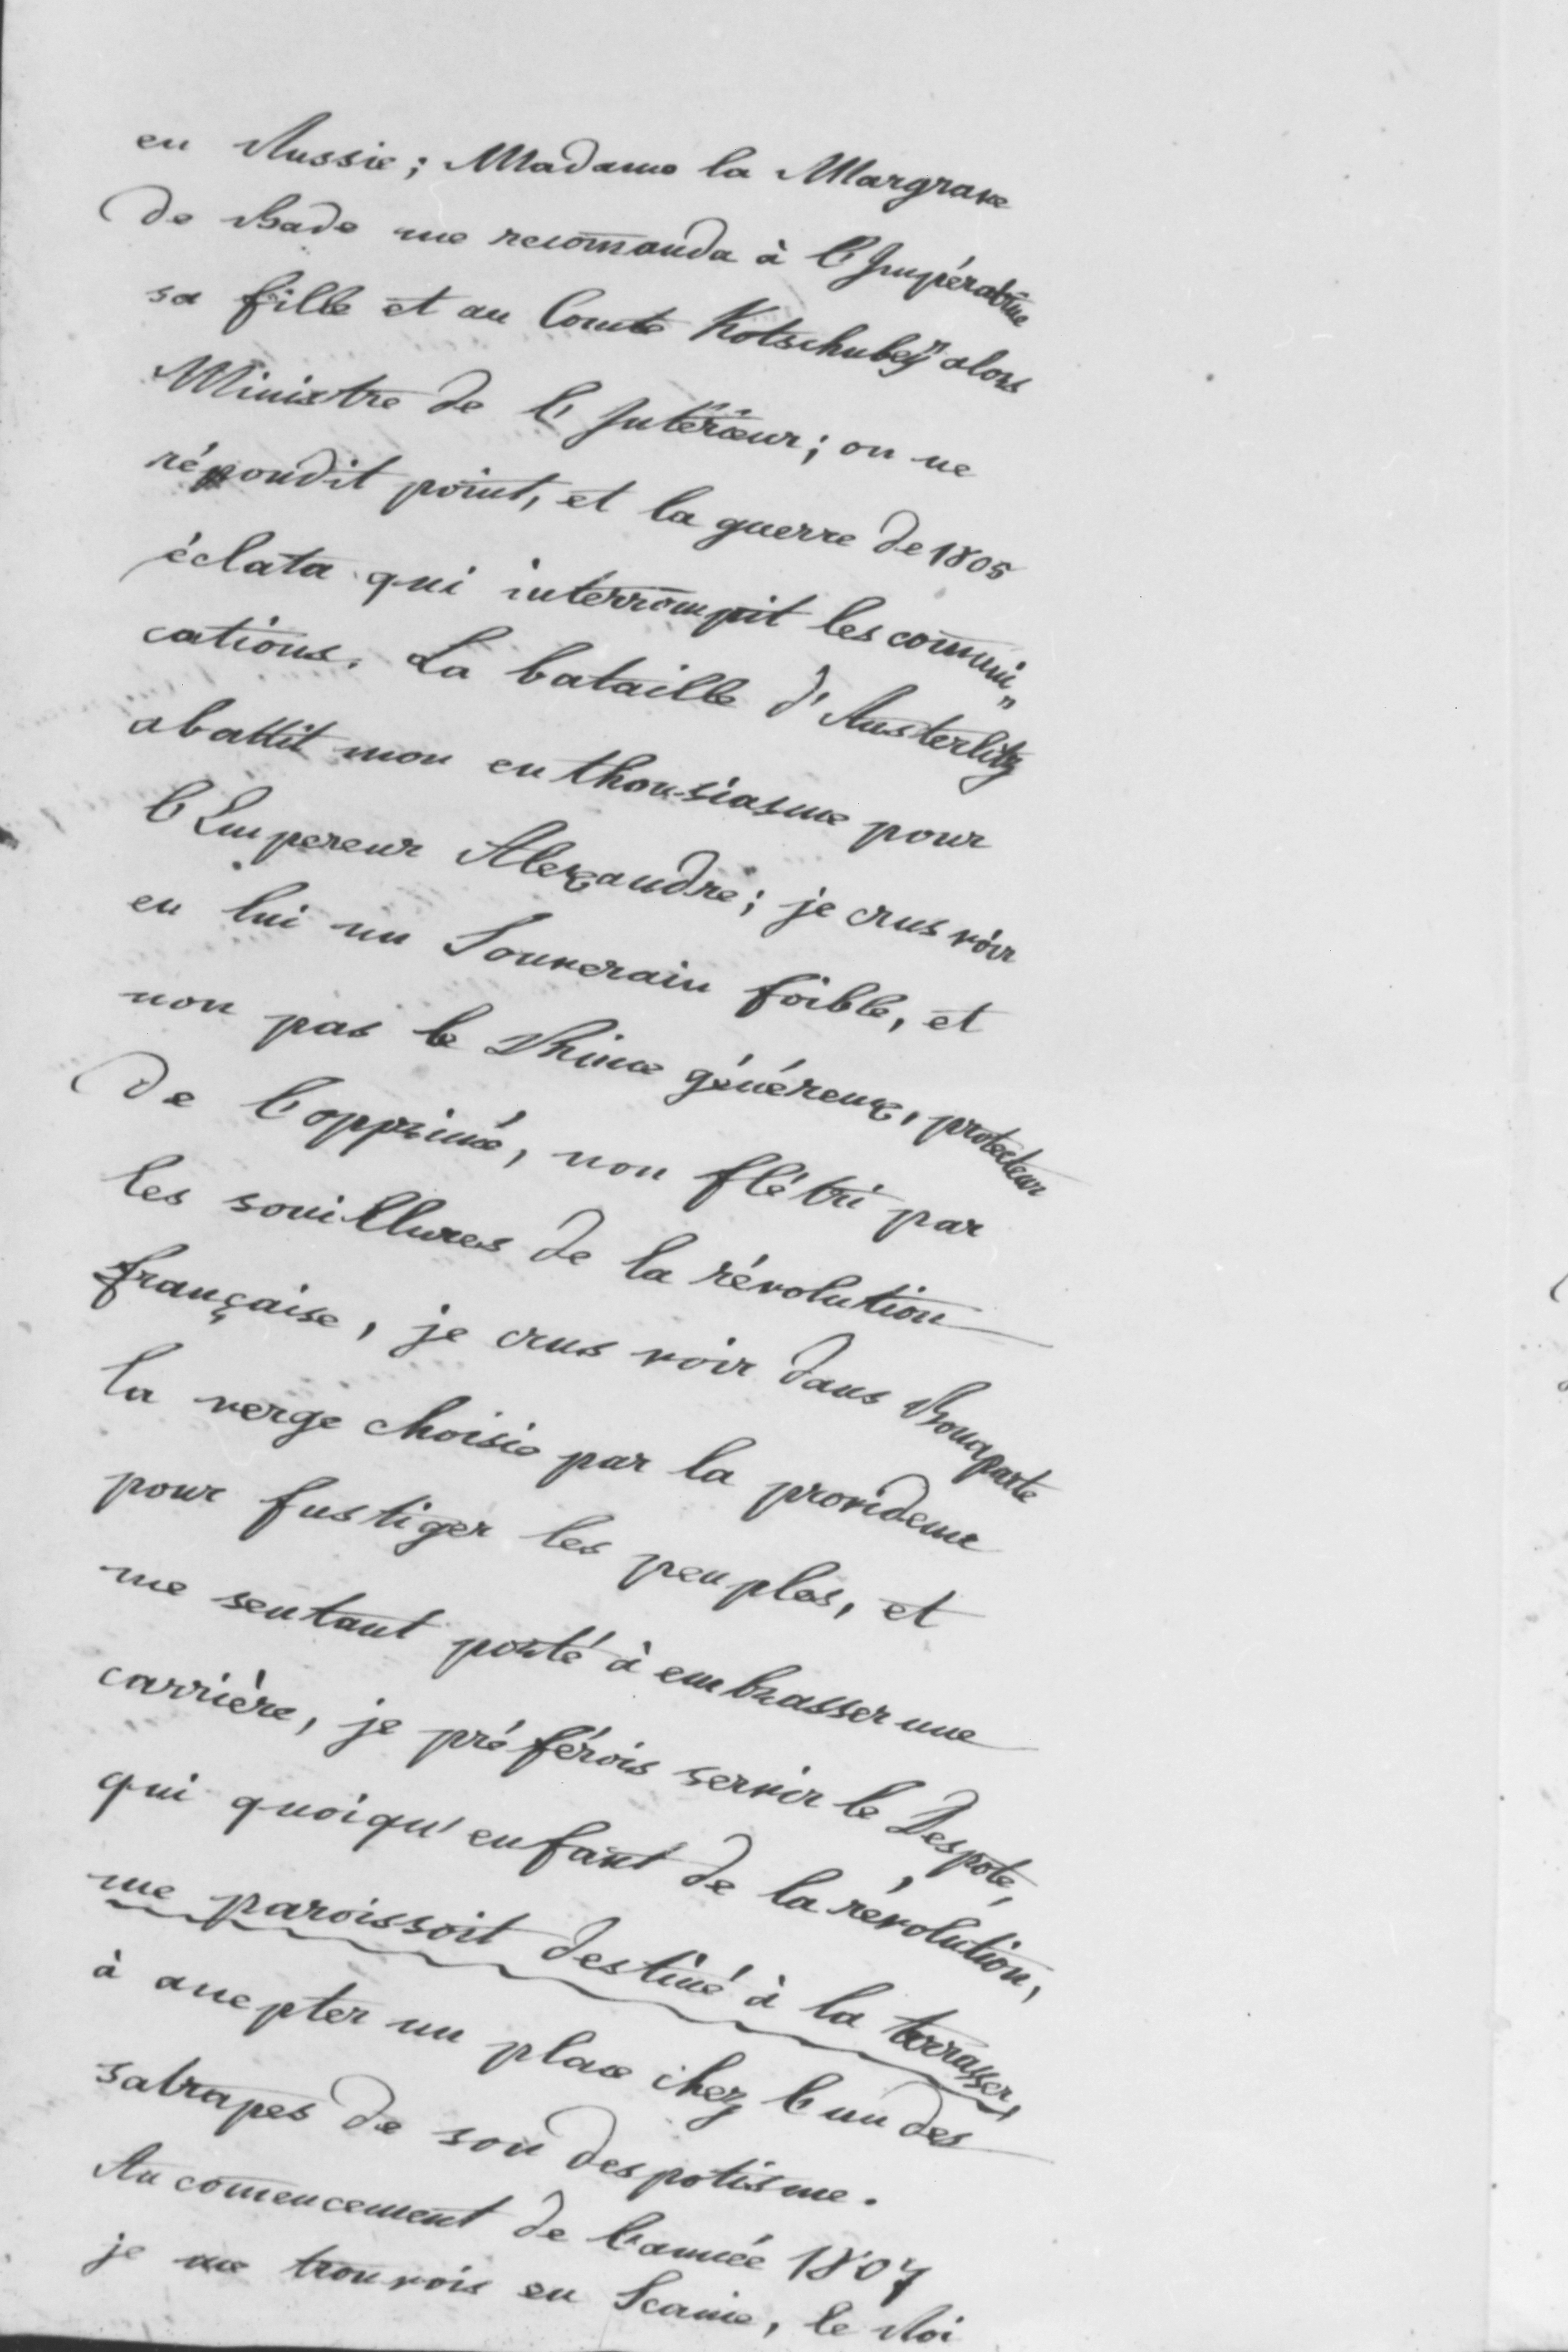 en Russie; Madame la Margrave
de Bade me recom̄anda à l'Impératrice
sa fille et au Comte Kotschubeÿ alors
Ministre de l'Intérieur; on ne
répondit point, et la guerre de 1805
éclata qui interrompit les com̄uni„
cations. La bataille d'Austerlitz
abattit mon enthousiasme pour
l'Empereur Alexandre; je crus voir
en lui un Souverain foible, et
non pas le Prince généreux, protecteur
de l'opprimé, non flétri par
les souillures de la révolution
française, je crus voir dans Bonaparte
la verge choisie par la providence
pour fustiger les peuples, et
me sentant porté à embrasser une
carrière, je préférois servir le Despote,
qui quoiqu'enfant de la révolution,
me paroissoit destiné à la terrasser,
à accepter un place chez l'un des
satrapes de son despotisme.
Au com̄encement de l'année 1807
je me trouvois en Scanie, le Roi